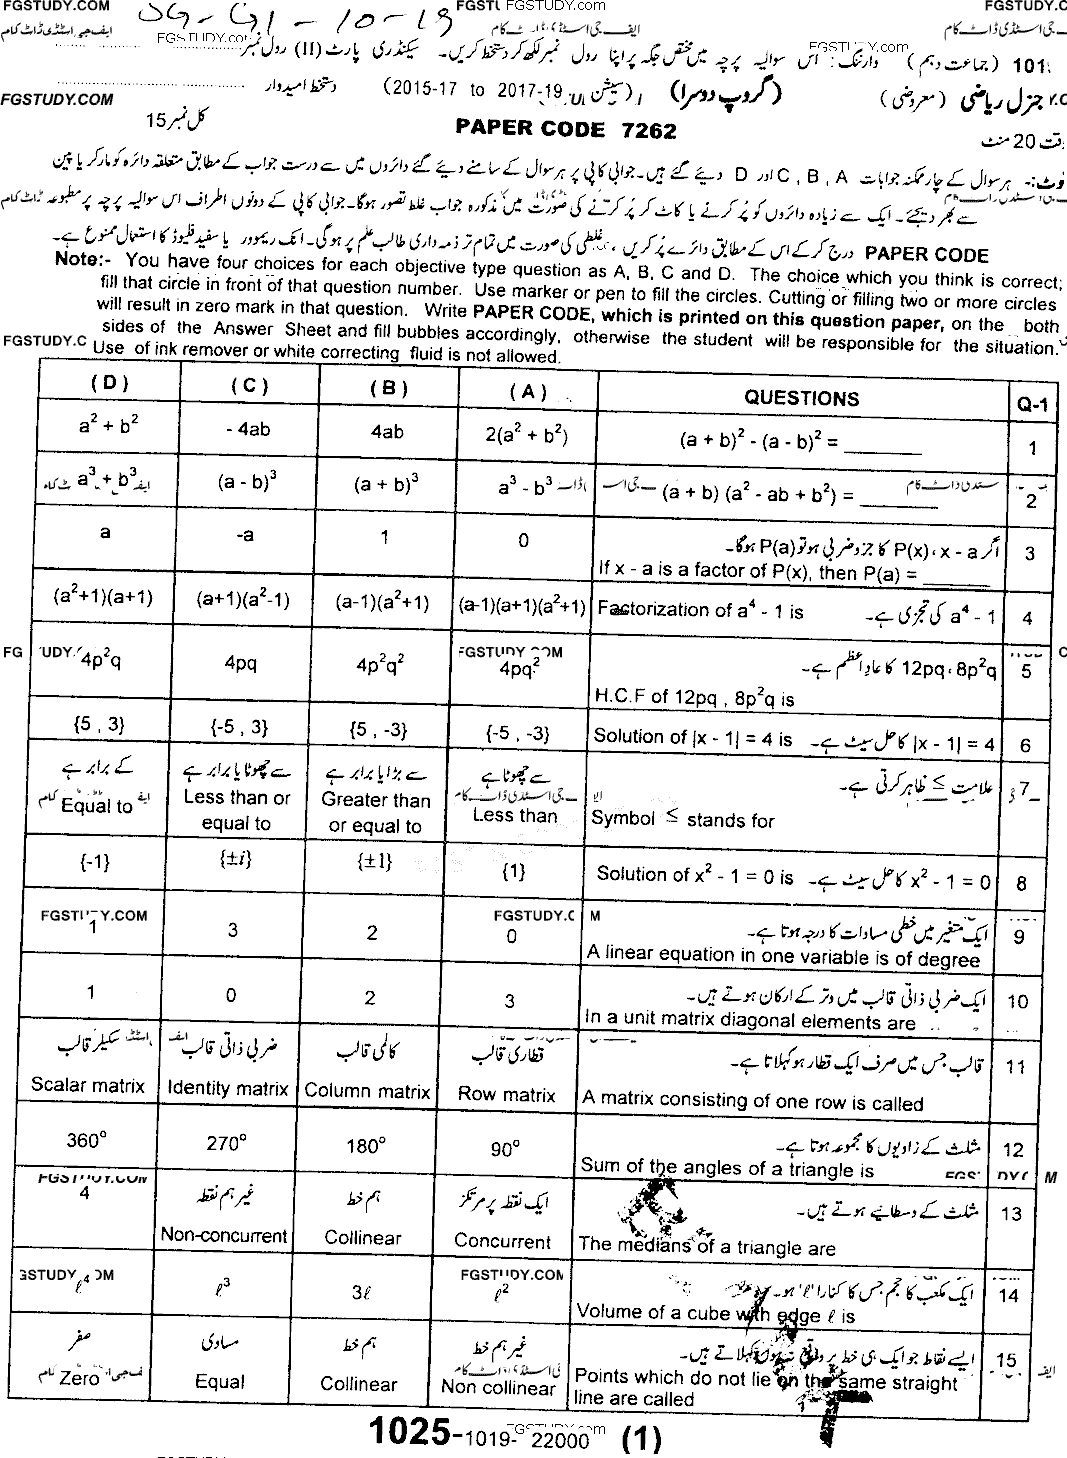 FGSTUDY.COM
SG-G1-10-19
FGSTUDY.com
FGSTUDY.COM
ایف جی اسٹڈی ڈاٹ کام
FGSTUDY.com
FGSTUDY.com
(جماعت دہم) وارننگ: اس سوالیہ پرچہ میں مختص جگہ پر اپنا رول نمبر لکھ کر دستخط کریں۔ سیکنڈری پارٹ (II) رول نمبر
FGSTUDY.COM
جنرل ریاضی (معروضی) (گروپ دوسرا) (سیشن 2015-17 to 2017-19) دستخط امیدوار
20 منٹ PAPER CODE 7262 کل نمبر 15
نوٹ:- ہر سوال کے چار ممکنہ جوابات A ، B ، C اور D دیے گئے ہیں۔ جوابی کاپی پر ہر سوال کے سامنے دیے گئے دائروں میں سے درست جواب کے مطابق متعلقہ دائرہ کو مارکر یا پین
سے بھر دیجئے۔ ایک سے زیادہ دائروں کو پُر کرنے یا کاٹ کر پُر کرنے کی صورت میں مذکورہ جواب غلط تصور ہوگا۔ جوابی کاپی کے دونوں اطراف اس سوالیہ پرچہ پر مطبوعہ
PAPER CODE درج کر کے اس کے مطابق دائرے پُر کریں ، غلطی کی صورت میں تمام تر ذمہ داری طالب علم پر ہوگی۔ انک ریموور یا سفید فلیوڈ کا استعمال ممنوع ہے۔
Note:- You have four choices for each objective type question as A, B, C and D. The choice which you think is correct;
fill that circle in front of that question number. Use marker or pen to fill the circles. Cutting or filling two or more circles
will result in zero mark in that question. Write PAPER CODE, which is printed on this question paper, on the both
sides of the Answer Sheet and fill bubbles accordingly, otherwise the student will be responsible for the situation.
FGSTUDY.C Use of ink remover or white correcting fluid is not allowed.
(D) (C) (B) (A) QUESTIONS Q-1
a² + b² - 4ab 4ab 2(a² + b²) (a + b)² - (a - b)² = ______ 1
a³ + b³ (a - b)³ (a + b)³ a³ - b³ (a + b) (a² - ab + b²) = ______ 2
a -a 1 0 اگر x - a ، P(x) کا جزو ضربی ہو تو P(a) ہوگا۔ 3
If x - a is a factor of P(x), then P(a) = ______
(a²+1)(a+1) (a+1)(a²-1) (a-1)(a²+1) (a-1)(a+1)(a²+1) Factorization of a⁴ - 1 is a⁴ - 1 کی تجزی ہے۔ 4
4p²q 4pq 4p²q² 4pq² 12pq ، 8p²q کا عاد اعظم ہے۔ 5
H.C.F of 12pq , 8p²q is
{5 , 3} {-5 , 3} {5 , -3} {-5 , -3} Solution of |x - 1| = 4 is |x - 1| = 4 کا حل سیٹ ہے۔ 6
کے برابر ہے سے چھوٹا یا برابر ہے سے بڑا یا برابر ہے سے چھوٹا ہے علامت ≤ ظاہر کرتی ہے۔ 7
Equal to Less than or equal to Greater than or equal to Less than Symbol ≤ stands for
{-1} {±i} {±1} {1} Solution of x² - 1 = 0 is x² - 1 = 0 کا حل سیٹ ہے۔ 8
1 3 2 0 ایک متغیر میں خطی مساوات کا درجہ ہوتا ہے۔ 9
A linear equation in one variable is of degree
1 0 2 3 ایک ضربی ذاتی قالب میں وتر کے ارکان ہوتے ہیں۔ 10
In a unit matrix diagonal elements are
سکیلر قالب ضربی ذاتی قالب کالمی قالب قطاری قالب قالب جس میں صرف ایک قطار ہو کہلاتا ہے۔ 11
Scalar matrix Identity matrix Column matrix Row matrix A matrix consisting of one row is called
360° 270° 180° 90° مثلث کے زاویوں کا مجموعہ ہوتا ہے۔ 12
Sum of the angles of a triangle is
4 غیر ہم نقطہ ہم خط ایک نقطہ پر مرتکز مثلث کے وسطانیے ہوتے ہیں۔ 13
Non-concurrent Collinear Concurrent The medians of a triangle are
ℓ⁴ ℓ³ 3ℓ ℓ² ایک مکعب کا حجم جس کا کنارا 'ℓ' ہو۔ 14
Volume of a cube with edge ℓ is
صفر مساوی ہم خط غیر ہم خط ایسے نقاط جو ایک ہی خط پر واقع نہ ہوں کہلاتے ہیں۔ 15
Zero Equal Collinear Non collinear Points which do not lie on the same straight
line are called
1025-1019-22000 (1)
FGSTUDY.com